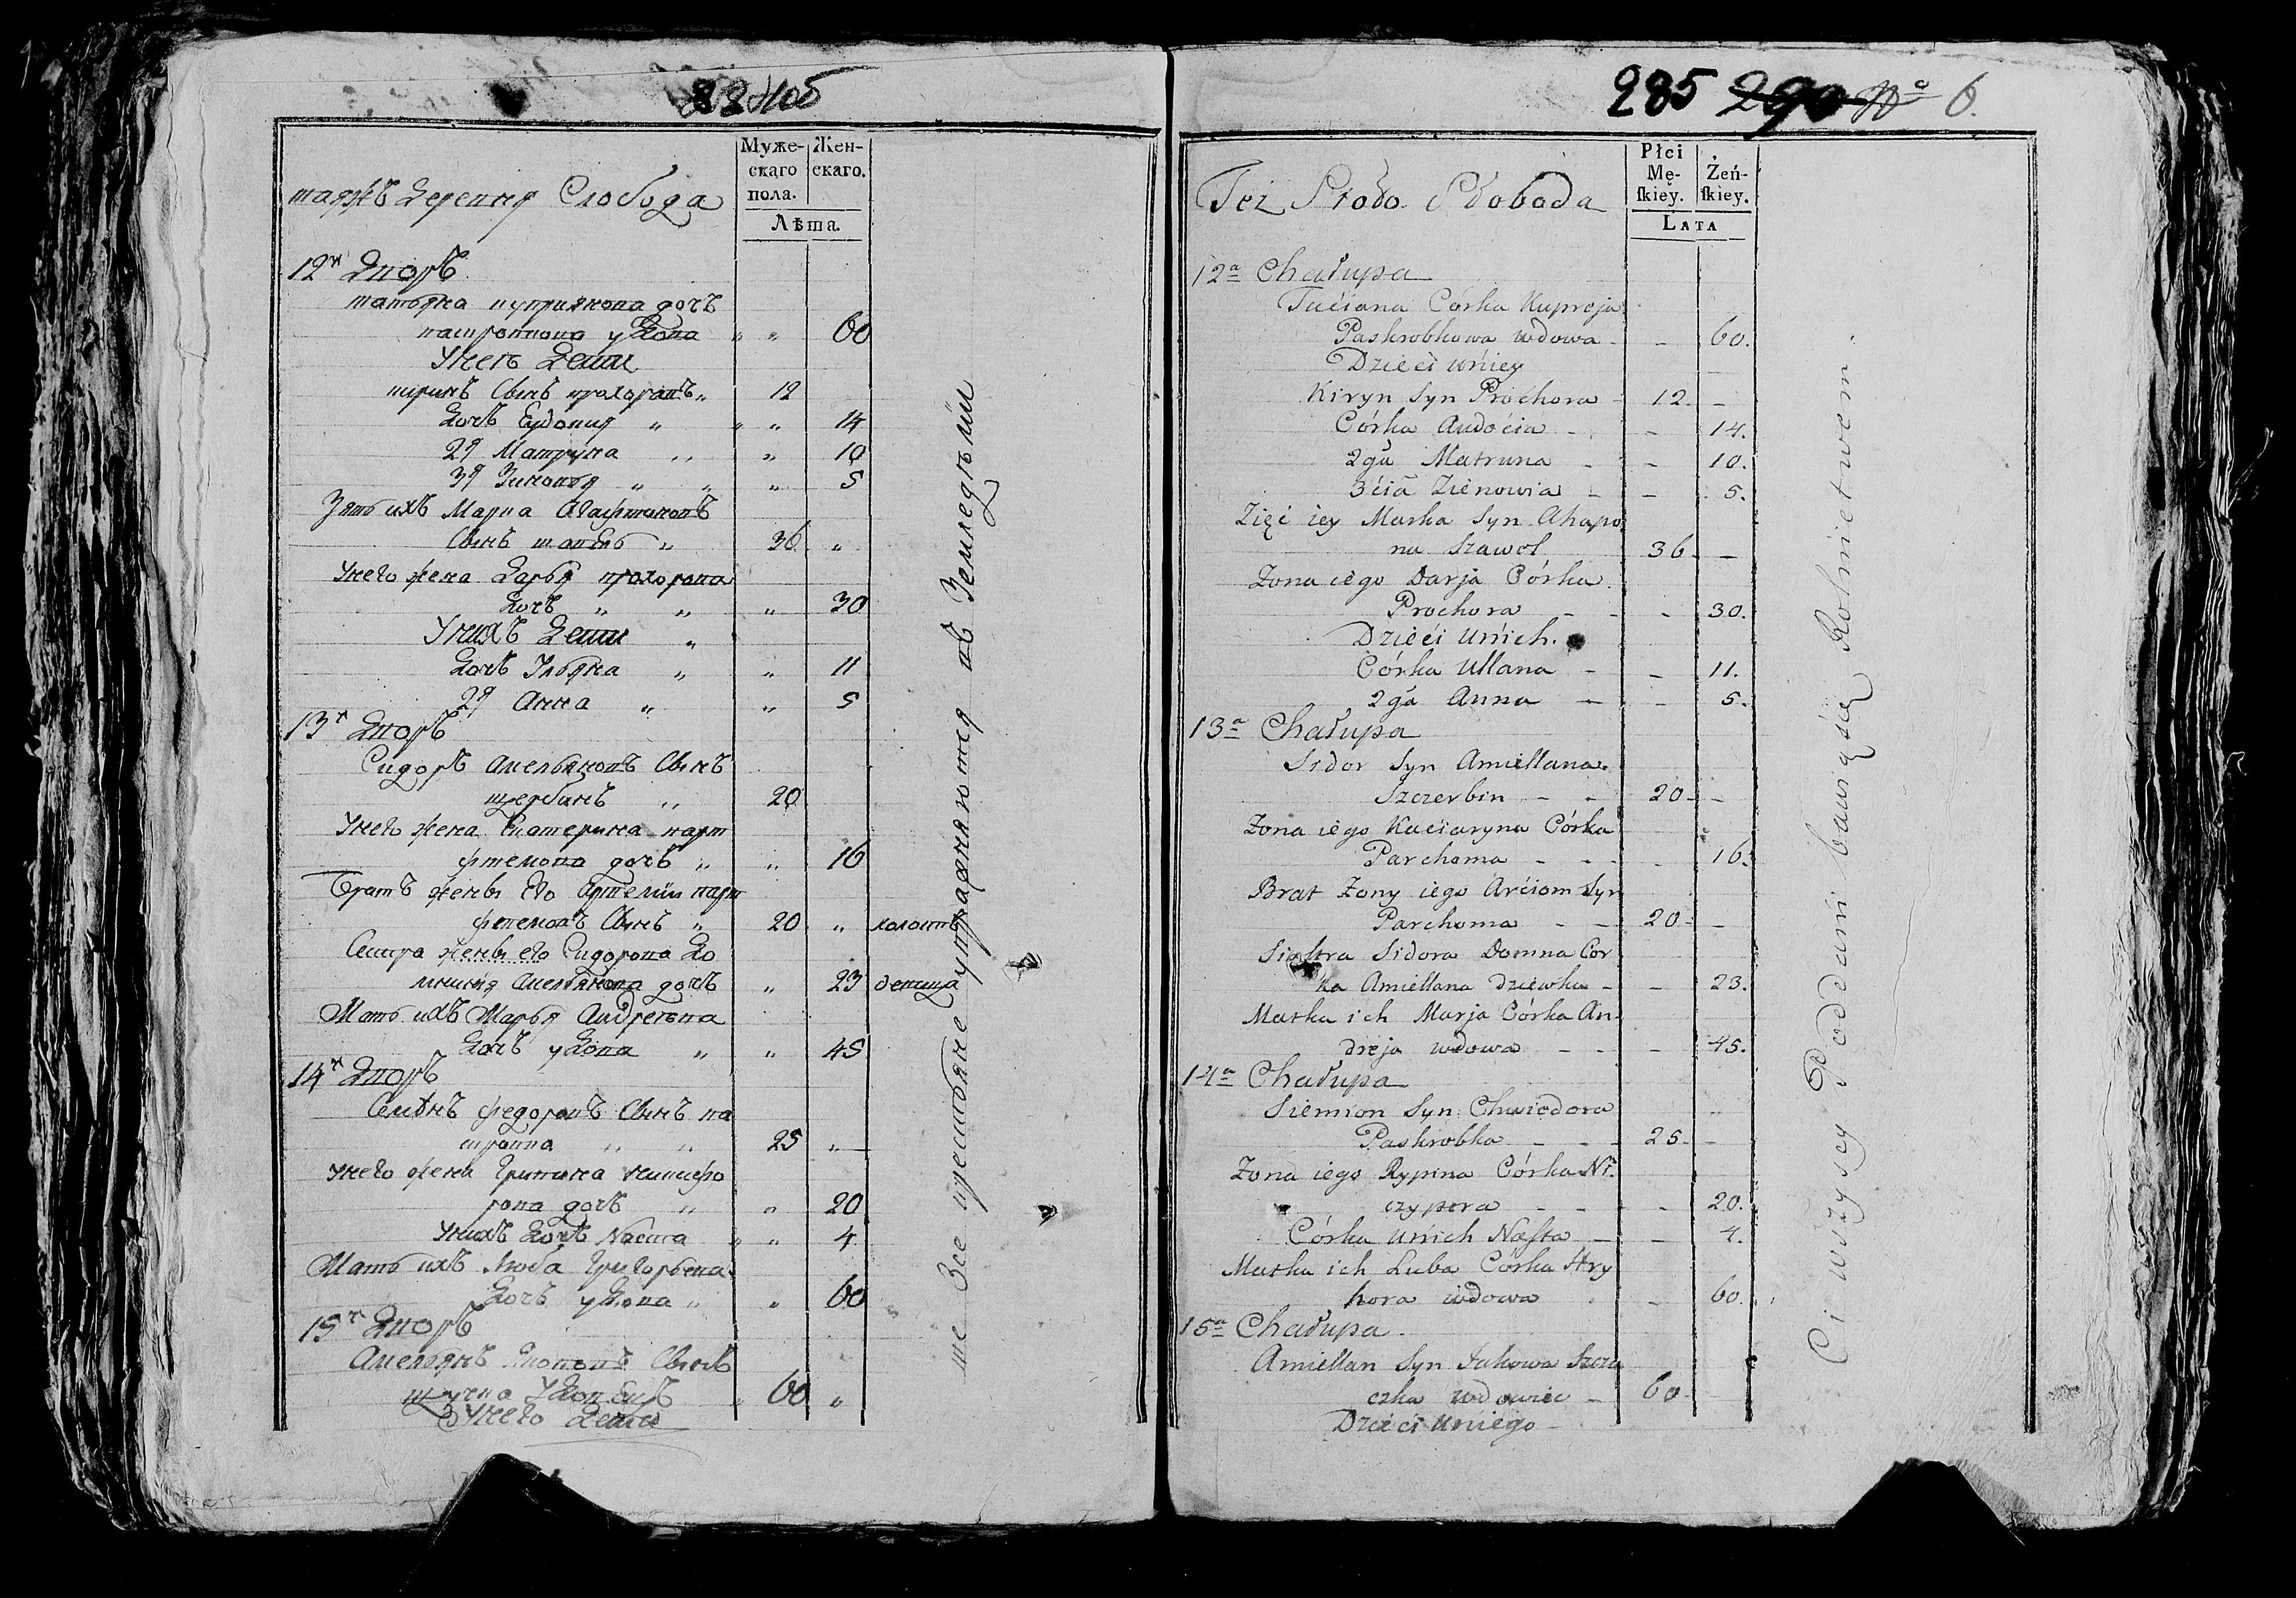 285 290 № 6.
Муже- Жен-
скаго скаго.
пола.
Лѣта.
таяжъ деревня Слобода
12й дворъ
татьяна куприянова дочъ
пашробкова удова " " 60
У нея дети
кирикъ Сынъ прохоровъ " 12
дочъ Еудокия " " " 14
2я Матруна " " 10
3я Зиновья " " " 5
Зять ихъ Марка Агафоновъ
Сынъ " 36 "
У него жена дарья прохорова
дочъ " " " 30
У нихъ дети "
дочъ Ульяна " " 11
2я Анна " " 5
13й дворъ
Сидоръ Амельяновъ Сынъ
щербинъ " 20
У него жена Екатерина парт
фтемова дочъ " " 16
Братъ жены его Артемiи парт
фтемовъ Сынъ " 20 " холостъ
Сестра жены его Сидорова до
мникiя Амельянова дочъ " 23 девица
Мать ихъ Марья Андреева
дочъ удова " " 45
14й дворъ
Семѣнъ федоровъ Сынъ па
шропка " " 25 "
У него жена Грипина никифо
рова дочъ " " 20
У нихъ дочъ Насита " " 4
Мать ихъ Люба Григорьева
дочъ удова " " 60
15й дворъ
Амельянъ Якововъ Сынъ
щучка удовецъ " 60 "
У него дети
те Все крестьяне упражняются въ Земледѣлiи
Płci
Mę- Żeń-
ſkiey. ſkiey.
LATA
Też Sioło Słoboda
12a Chałupa
Taciana Córka Kupreja
Paskrobkowa wdowa - - 60.
Dzieci wniey
Kiryn Syn Prochora - 12 -
Córka Audocia - - 14.
2ga Matruna - - 10.
3cia Zienowia - - 5.
Zięć iey Marka Syn Ahapo
na Szawoł 36 -
Zona iego Darja Córka
Prochora - - 30.
Dzieci Unich.
Córka Ullana - - 11.
2ga Anna - - 5.
13a Chałupa
Sidor Syn Amiellana
Szczerbin - - 20 -
Zona iego Kaciaryna Córka
Parchoma - - - 16.
Brat Zony iego Arciom Syn
Parchoma - - 20 -
Siostra Sidora Domna Cór
ka Amiellana dziewka - - 23.
Matka ich Marja Córka An-
dreja wdowa - - - 45.
14a Chałupa
Siemion Syn Chwiedora
Paskrobka - - - 25 -
Zona iego Rypina Córka Ni
czypora - - - 20.
Córka Unich Naſta - - 4.
Matka ich Luba Córka Hry
hora wdowa - 60.
15a Chałupa
Amiellan Syn Jakowa Szczu
czka wdowiec - 60 -
Dzieci Uniego -
Ci wszyscy Poddani bawią się Rolnictwem.